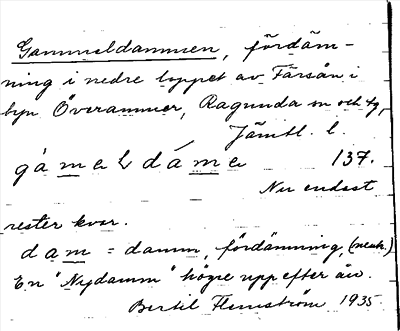 Gammeldammen, fördäm-
ning i nedre loppet av Färsån i
byn Överammer, Ragunda sn och tg,
Jämtl. l.
gàmeldáme 137.
Nu endast
rester kvar.
dam = damm, fördämning, (neutr.)
En "Nydamm" högre upp efter ån.
Bertil Flemström 1935